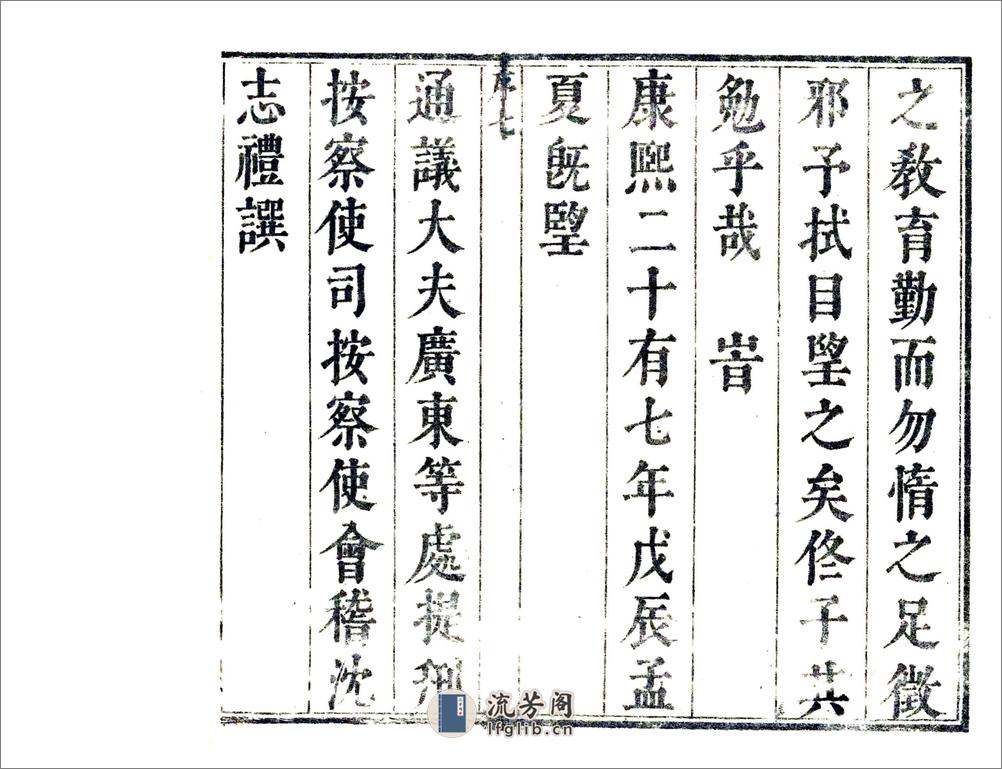 之教育勤而勿惰之足徵
邪予拭目望之矣佟子其
勉乎哉　旹
康熙二十有七年戊辰孟
夏旣望
序七
通議大夫廣東等處提刑
按察使司按察使會稽沈
志禮譔
流芳阁
lfglib.cn